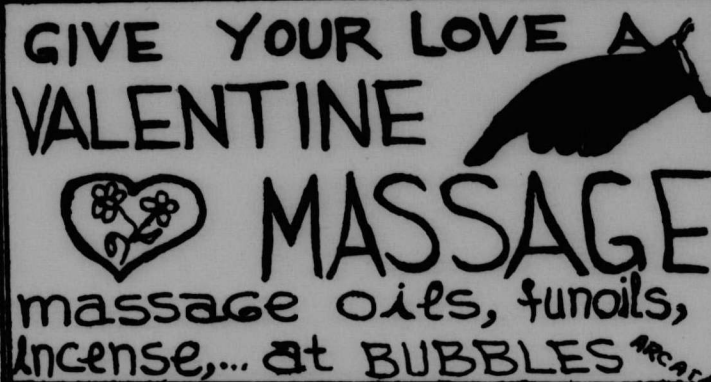 GIVE YOUR LOVE A
VALENTINE
MASSAGE
massage oils, funoils,
incense,... at BUBBLES